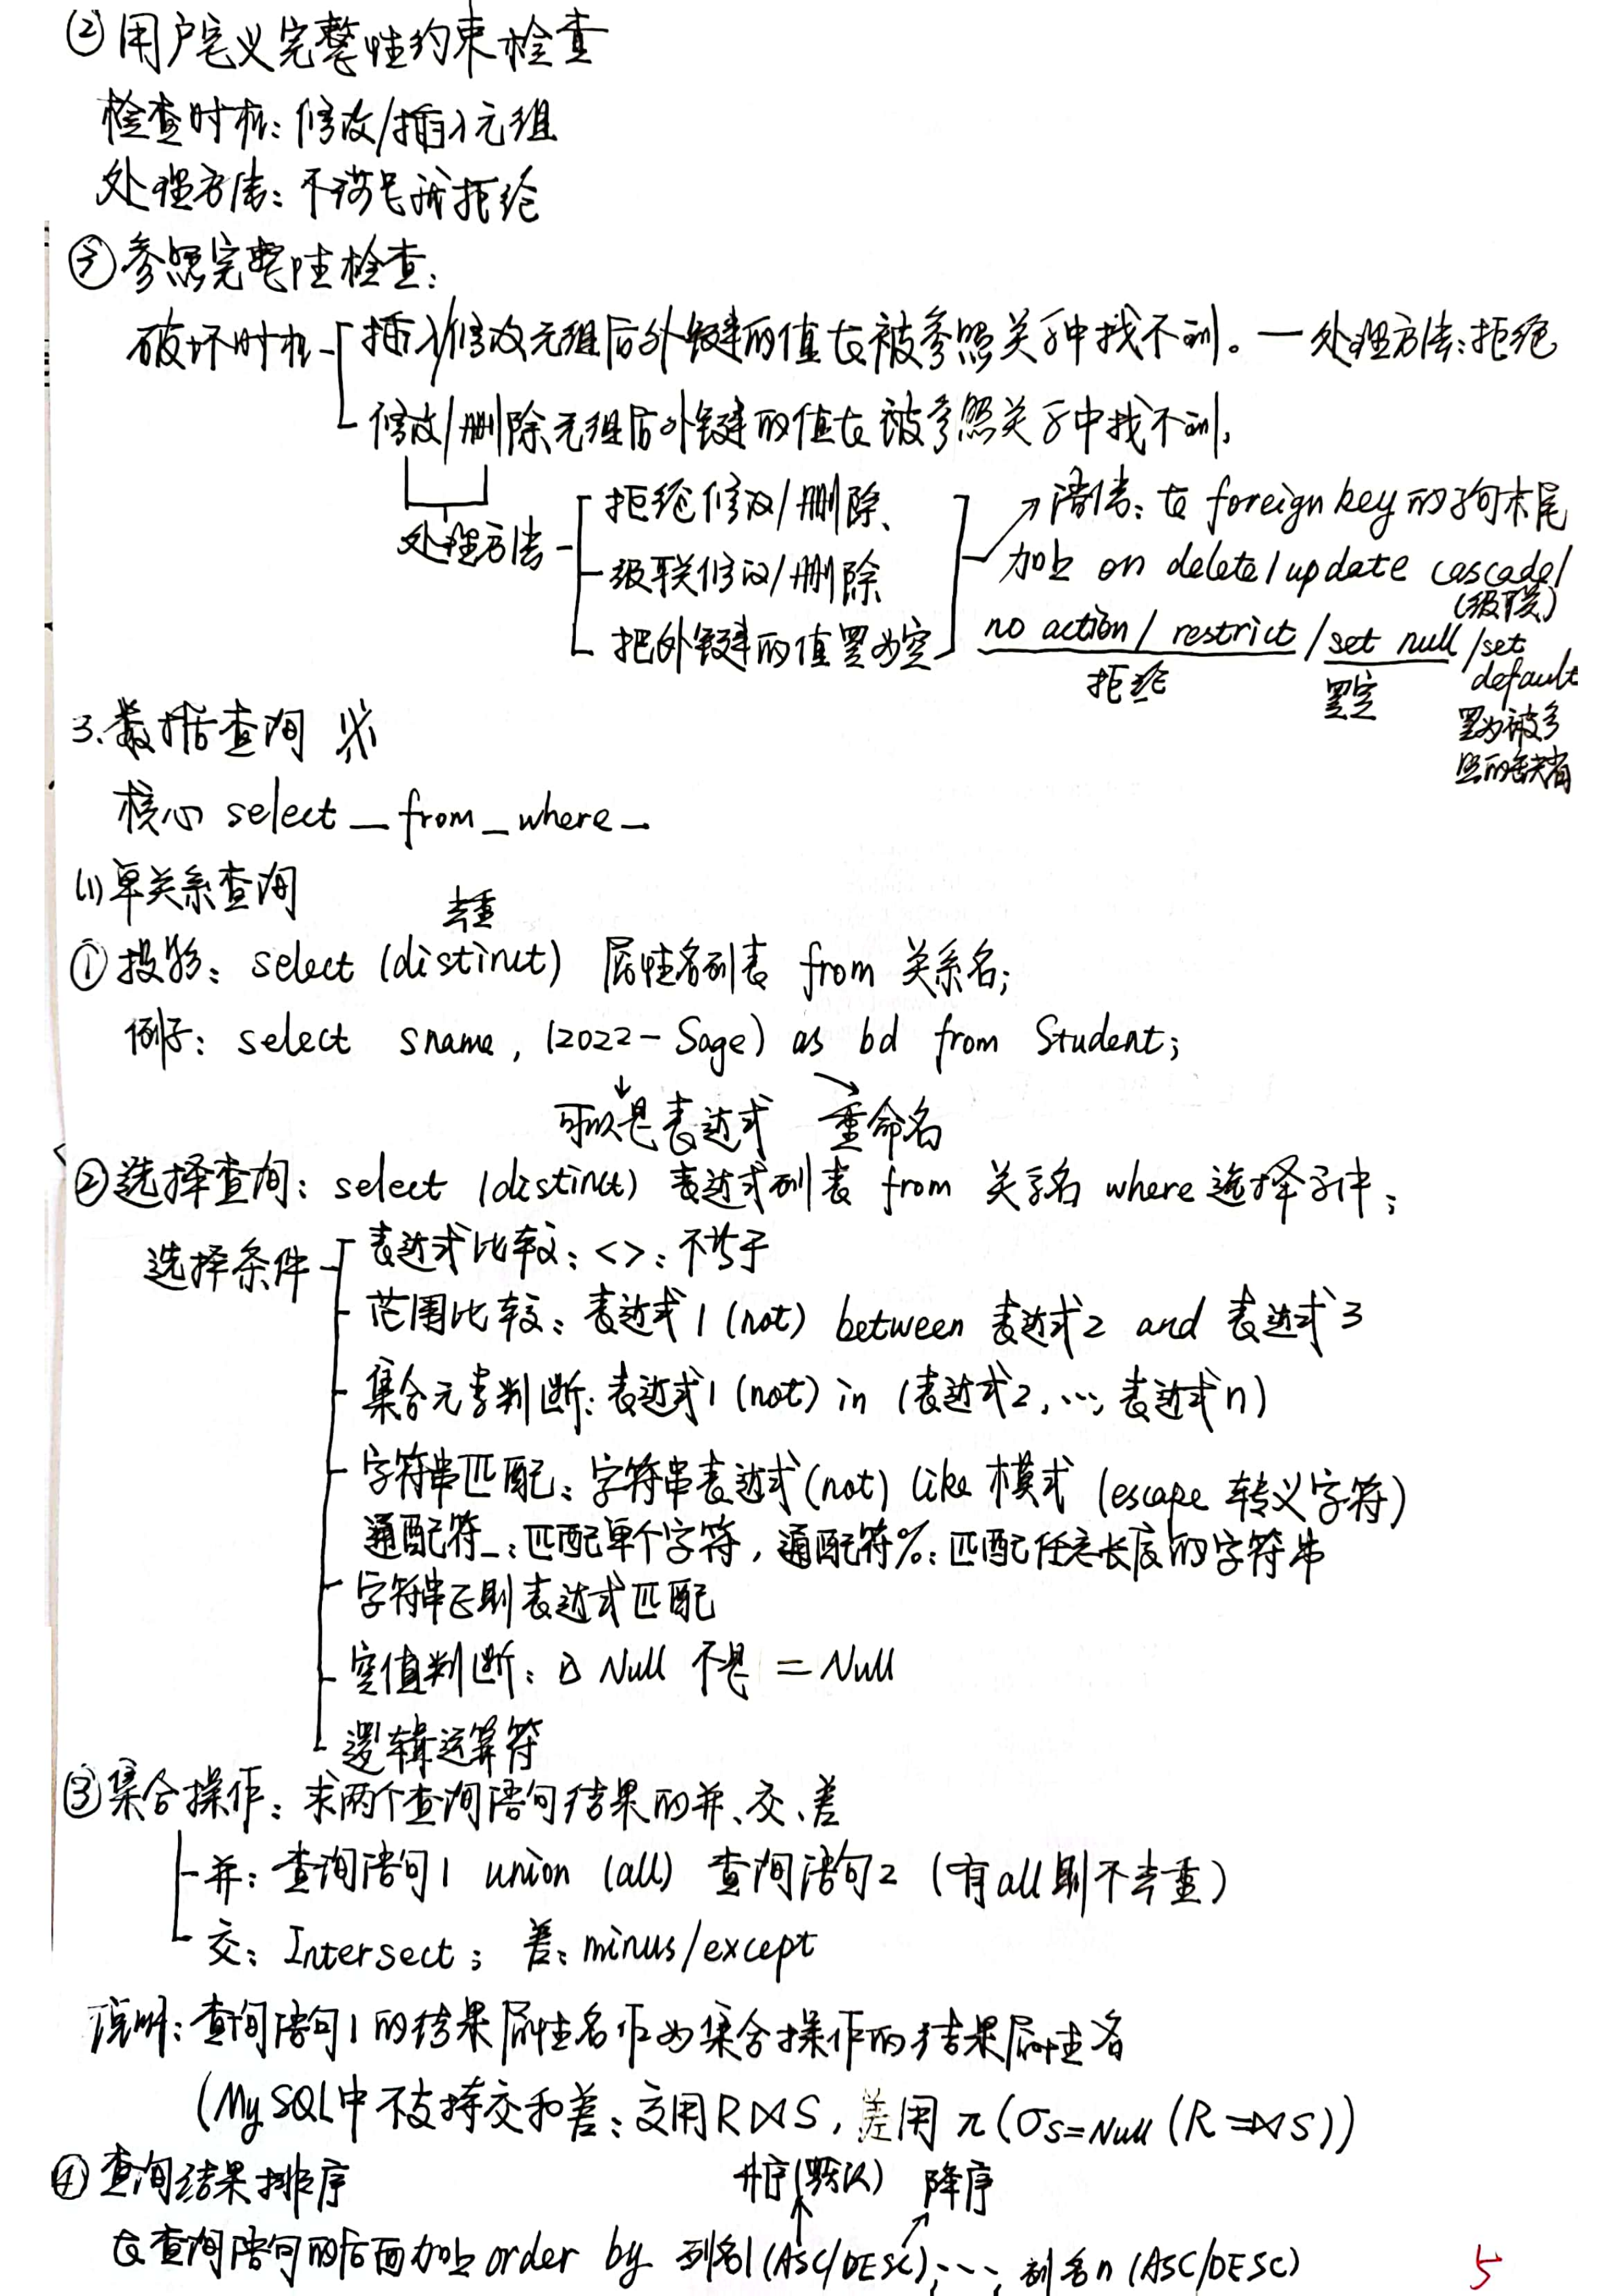 ② 用户定义完整性约束检查
检查时机: 修改/插入元组
处理方法: 不满足就拒绝
③ 参照完整性检查:
破坏时机 插入/修改元组后外键的值在被参照关系中找不到。— 处理方法: 拒绝
修改/删除元组后外键的值在被参照关系中找不到。
处理方法
拒绝修改/删除、
级联修改/删除
把外键的值置为空
语法: 在 foreign key 的子句末尾
加上 on delete/update cascade/
(级联)
no action / restrict / set null / set
default
拒绝
置空
置为被参
照的缺省
3. 数据查询 ※
核心 select _ from _ where _
(1) 单关系查询
去重
① 投影: select (distinct) 属性名列表 from 关系名;
例子: select sname, (2022 - Sage) as bd from Student;
可以是表达式 重命名
② 选择查询: select (distinct) 表达式列表 from 关系名 where 选择条件;
选择条件 表达式比较: <>: 不等于
范围比较: 表达式1 (not) between 表达式2 and 表达式3
集合元素判断: 表达式1 (not) in (表达式2, …, 表达式n)
字符串匹配: 字符串表达式 (not) like 模式 (escape 转义字符)
通配符_: 匹配单个字符, 通配符%: 匹配任意长度的字符串
字符串正则表达式匹配
空值判断: is Null 不是 = Null
逻辑运算符
③ 集合操作: 求两个查询语句结果的并、交、差
并: 查询语句1 union (all) 查询语句2 (有all则不去重)
交: Intersect; 差: minus/except
说明: 查询语句1的结果属性名作为集合操作的结果属性名
(MySQL中不支持交和差: 交用 R⋈S, 差用 π(σS=Null (R =⋈ S)))
④ 查询结果排序
升序(默认) 降序
在查询语句的后面加上 order by 列名1 (ASC/DESC), …, 列名n (ASC/DESC)
5